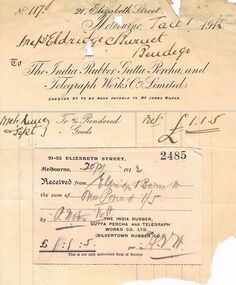 No 1176 21, Elizabeth Street,
Melbourne, Jan 1 1912
Messrs Eldridge & Burnet
Bendigo
To The India Rubber, Gutta Percha, and
Telegraph Works Co. Limited
CHEQUES TO BE MADE PAYABLE TO MR JAMES
To a/c Rendered Net £1.1.5
Goods
21-23 ELIZABETH STREET, 2485
Melbourne, 191
Received from Eldridge & Burnet
the sum of One Pound 1/5
by
THE INDIA RUBBER,
GUTTA PERCHA AND TELEGRAPH
WORKS CO. LTD.
(SILVERTOWN RUBBER CO.)
£ 1:1:5
This is our only authorised form of Receipt